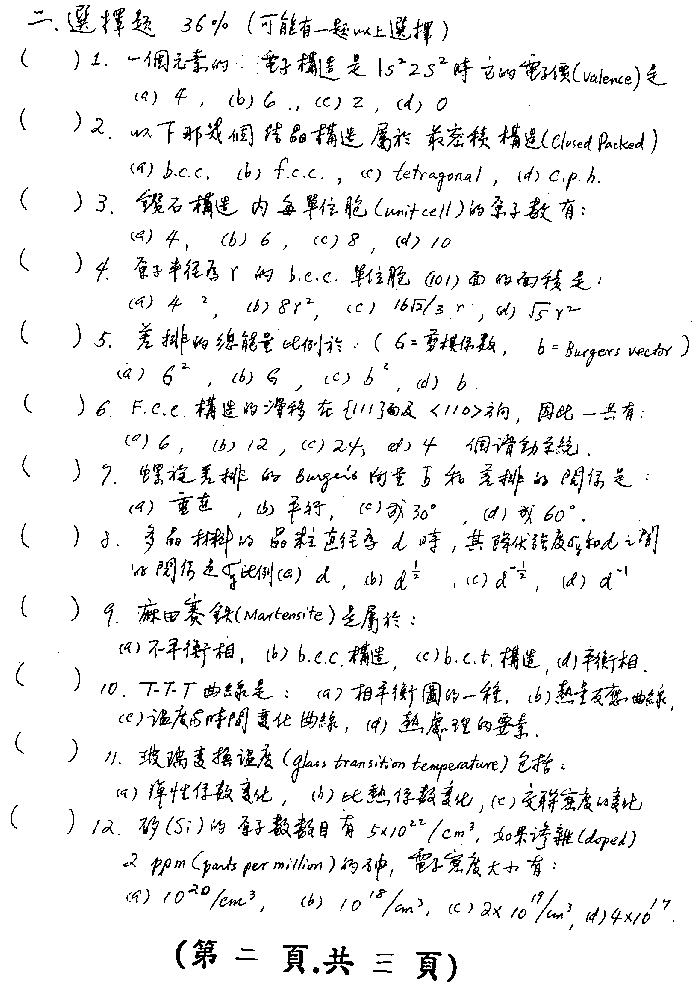 二、選擇題 36% (可能有一題以上選擇)
( ) 1. 一個元素的 電子構造是 1s² 2s² 時它的電子價(valence)是
(a) 4, (b) 6, (c) 2, (d) 0
( ) 2. 以下那幾個結晶構造屬於最密積構造(Closed Packed)
(a) b.c.c. (b) f.c.c., (c) tetragonal, (d) c.p.h.
( ) 3. 鑽石構造內每單位胞(unit cell)的原子數有:
(a) 4, (b) 6, (c) 8, (d) 10
( ) 4. 原子半徑為 r 的 b.c.c. 單位胞 (101) 面的面積是:
(a) 4 ², (b) 8r², (c) 16√2/3 r , (d) √5 r²
( ) 5. 差排的總能量比例於: (G=剪模係數, b=Burgers vector)
(a) G², (b) G, (c) b², (d) b.
( ) 6. F.C.C. 構造的滑移在{111}面及<110>方向, 因此一共有:
(a) 6, (b) 12, (c) 24, (d) 4 個滑動系統.
( ) 7. 螺旋差排的 Burgers 向量 b 和差排的關係是:
(a) 垂直, (b) 平行, (c) 或30°, (d) 或60°.
( ) 8. 多晶材料的晶粒直徑為 d 時, 其降伏強度σy和d之間
的關係是σy比例(a) d, (b) d^½, (c) d^-½, (d) d⁻¹
( ) 9. 麻田賽鐵(Martensite)是屬於:
(a) 不平衡相, (b) b.c.c. 構造, (c) b.c.t. 構造, (d) 平衡相.
( ) 10. T-T-T 曲線是: (a) 相平衡圖的一種, (b) 熱量反應曲線,
(c) 溫度與時間變化曲線, (d) 熱處理的要素.
( ) 11. 玻璃變換溫度(glass transition temperature)包括:
(a) 彈性係數變化, (b) 比熱係數變化, (c) 交聯密度的變化
( ) 12. 矽(Si)的原子數數目有 5×10²²/cm³, 如果滲雜(doped)
2 ppm (parts per million)的砷, 電子密度大小有:
(a) 10²⁰/cm³, (b) 10¹⁸/cm³, (c) 2×10¹⁹/cm³, (d) 4×10¹⁷.
(第 二 頁.共 三 頁)